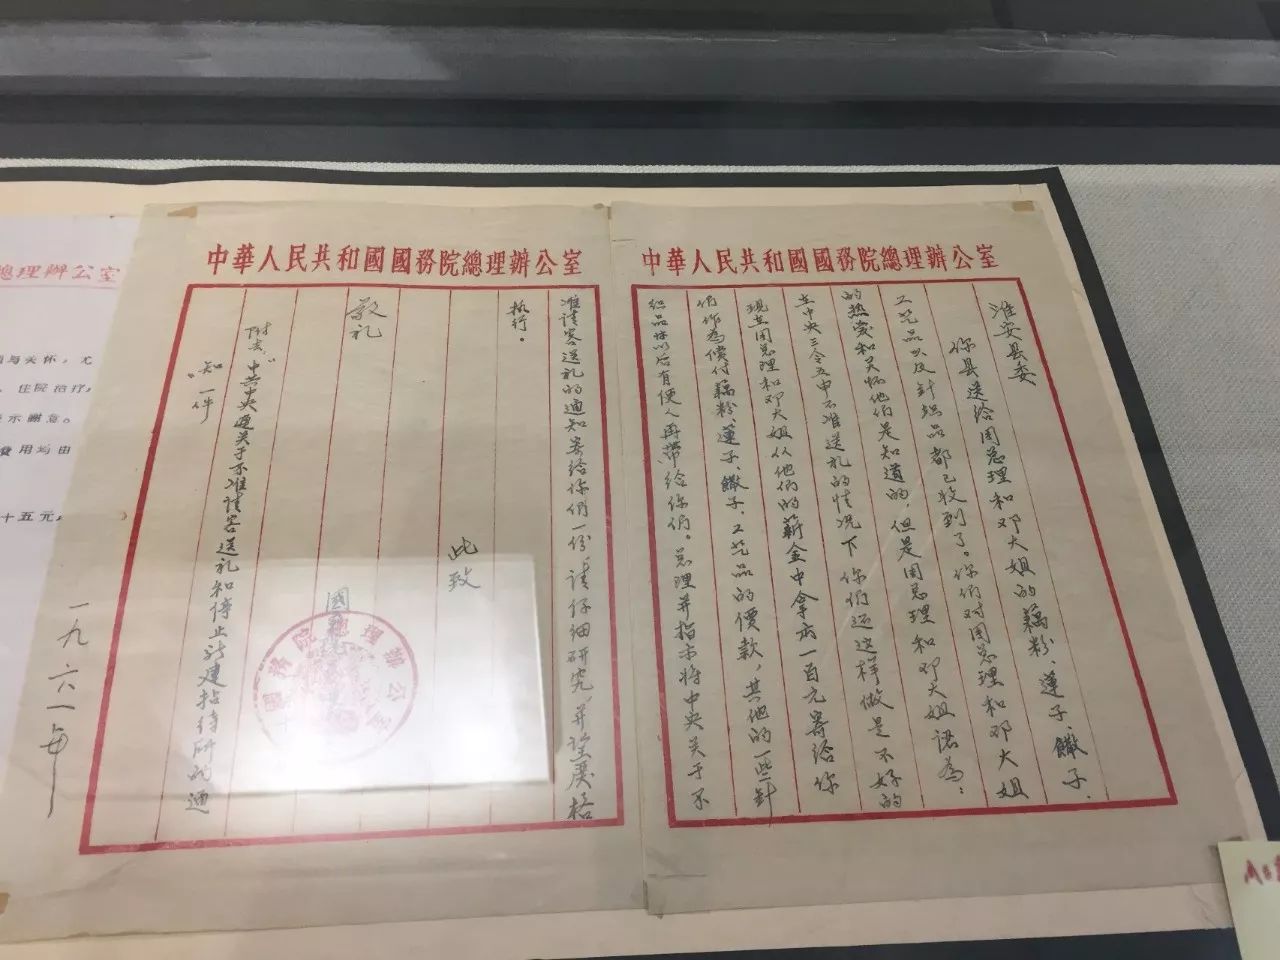 中華人民共和國國務院總理辦公室
淮安县委
你县送给周总理和邓大姐的藕粉、蓮子、饊子、
工艺品以及針织品都已收到了。你们对周总理和邓大姐
的热爱和关怀他们是知道的，但是周总理和邓大姐认为：
在中央三令五申不准送礼的情况下你们还这样做是不好的
现在周总理和邓大姐从他们的薪金中拿出一百元寄给你
们作为償付藕粉、蓮子、饊子、工艺品的價款，其他的一些針
织品等以后有便人再带给你们。总理并指示将中央关于不
中華人民共和國國務院總理辦公室
准请客送礼的通知寄给你们一份，请仔细研究，并望严格
执行。
此致
敬礼
國務院總理辦公室
附去：中共中央关于不准请客送礼和停止新建招待所的通
知一件。
一九六一年
總理辦公室
与关怀，尤
住院治疗，
示謝意。
費用均由
十五元，